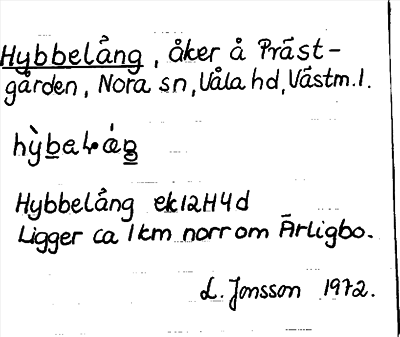 Hybbelång, åker å Präst-
gården, Nora sn, Våla hd, Västm. l.
Hybbelång ek 12H4d
Ligger ca 1 km norr om Ärligbo.
L. Jonsson 1972.